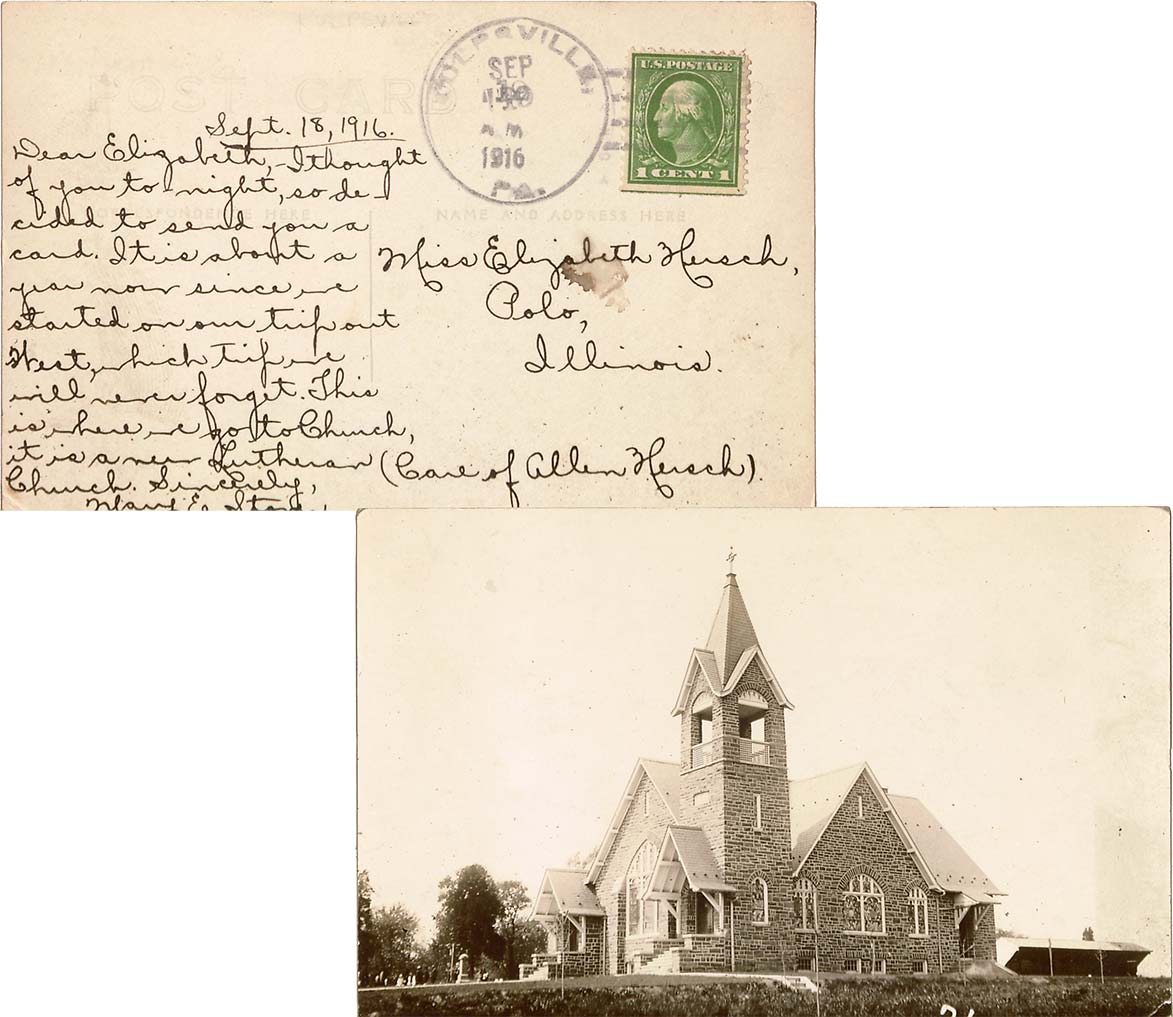 POST CARD
KULPSVILLE,
SEP
19
A M
1916
PA.
U.S.POSTAGE
1 CENT 1
CORRESPONDENCE HERE
NAME AND ADDRESS HERE
Sept. 18, 1916.
Dear Elizabeth,-I thought
of you to-night, so de-
cided to send you a
card. It is about a
year now since we
started on our trip out
West, which trip we
will never forget. This
is where we go to Church,
it is a new Lutheran
Church. Sincerely,
Mary E.
Miss Elizabeth Hersch,
Polo,
Illinois.
(Care of Allen Hersch).